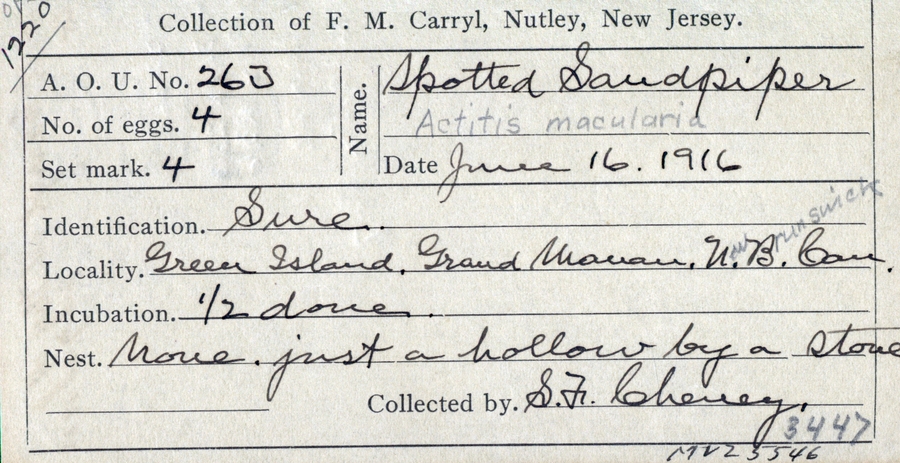 1220
Collection of F. M. Carryl, Nutley, New Jersey.
A. O. U. No. 263
No. of eggs. 4
Set mark. 4
Name. Spotted Sandpiper
Actitis macularia
Date June 16. 1916
Identification. Sure.
Locality. Green Island, Grand Manan, N.B. Can.
New Brunswick
Incubation. 1/2 done.
Nest. None. just a hollow by a stone
Collected by. S.F. Cheney,
3447
MVZ 5546